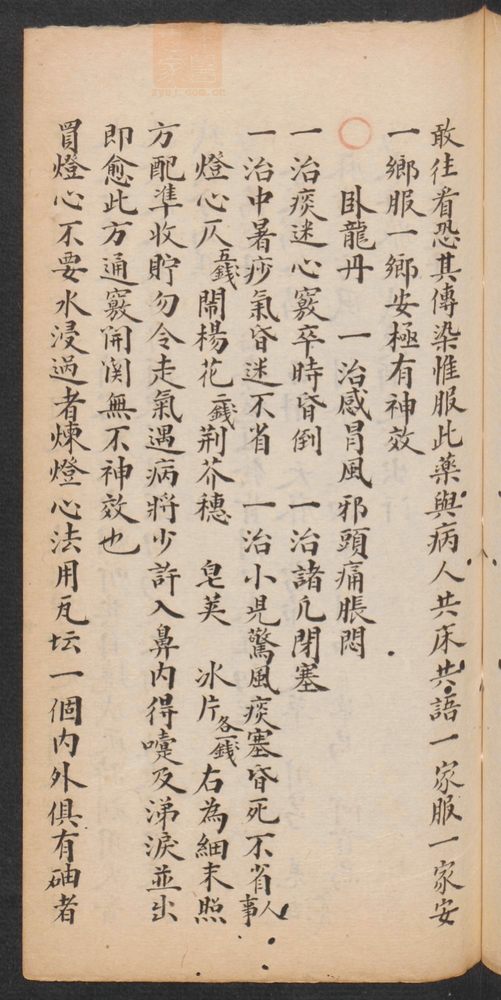 敢往看恐其傳染惟服此藥與病人共床共語一家服一家安
一鄉服一鄉安極有神效
臥龍丹 一治感冒風邪頭痛脹悶
一治痰迷心竅卒時昏倒 一治諸凡閉塞
一治中暑痧氣昏迷不省 一治小児驚風痰塞昏死不省人事
燈心灰五錢鬧楊花二錢荆芥穗 皂莢 冰片各一錢右為細末照
方配準收貯勿令走氣遇病將少許入鼻内得嚏及涕淚並出
即愈此方通竅開関無不神效也
買燈心不要水浸過者煉燈心法用瓦坛一個内外俱有砷者